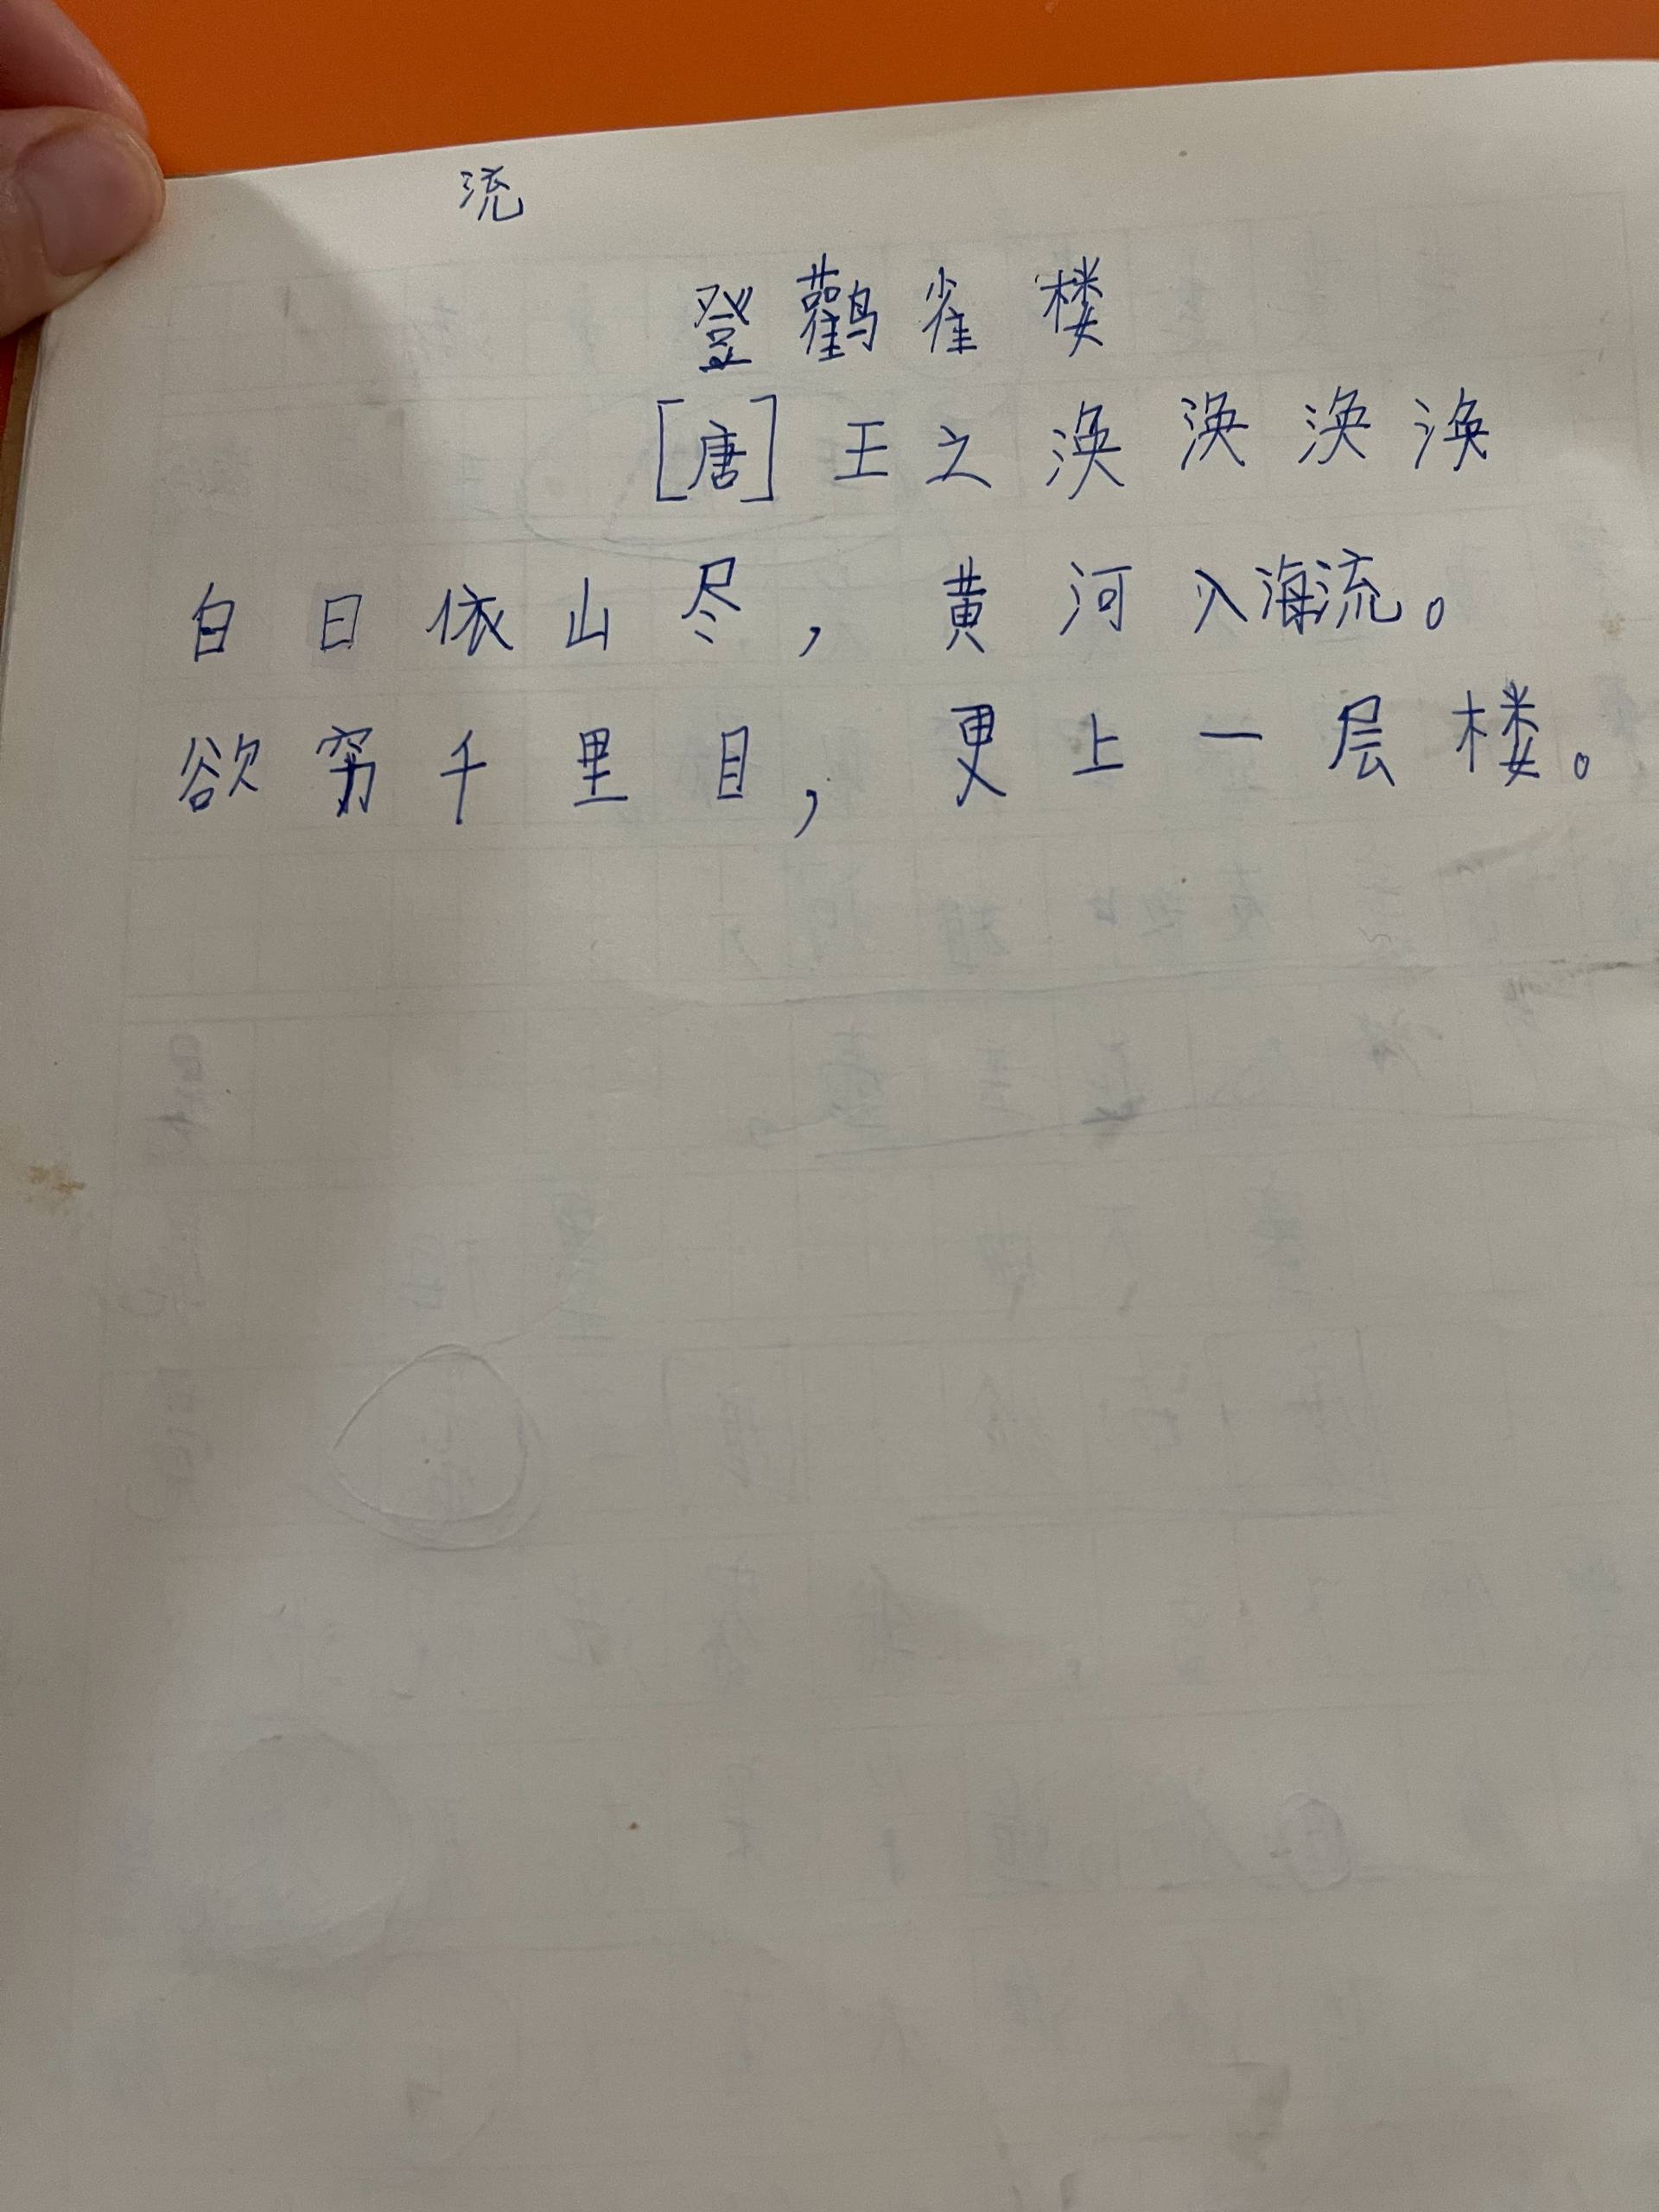 流
登鸛雀楼
[唐]王之涣涣涣涣
白日依山尽，黄河入海流。
欲穷千里目，更上一层楼。